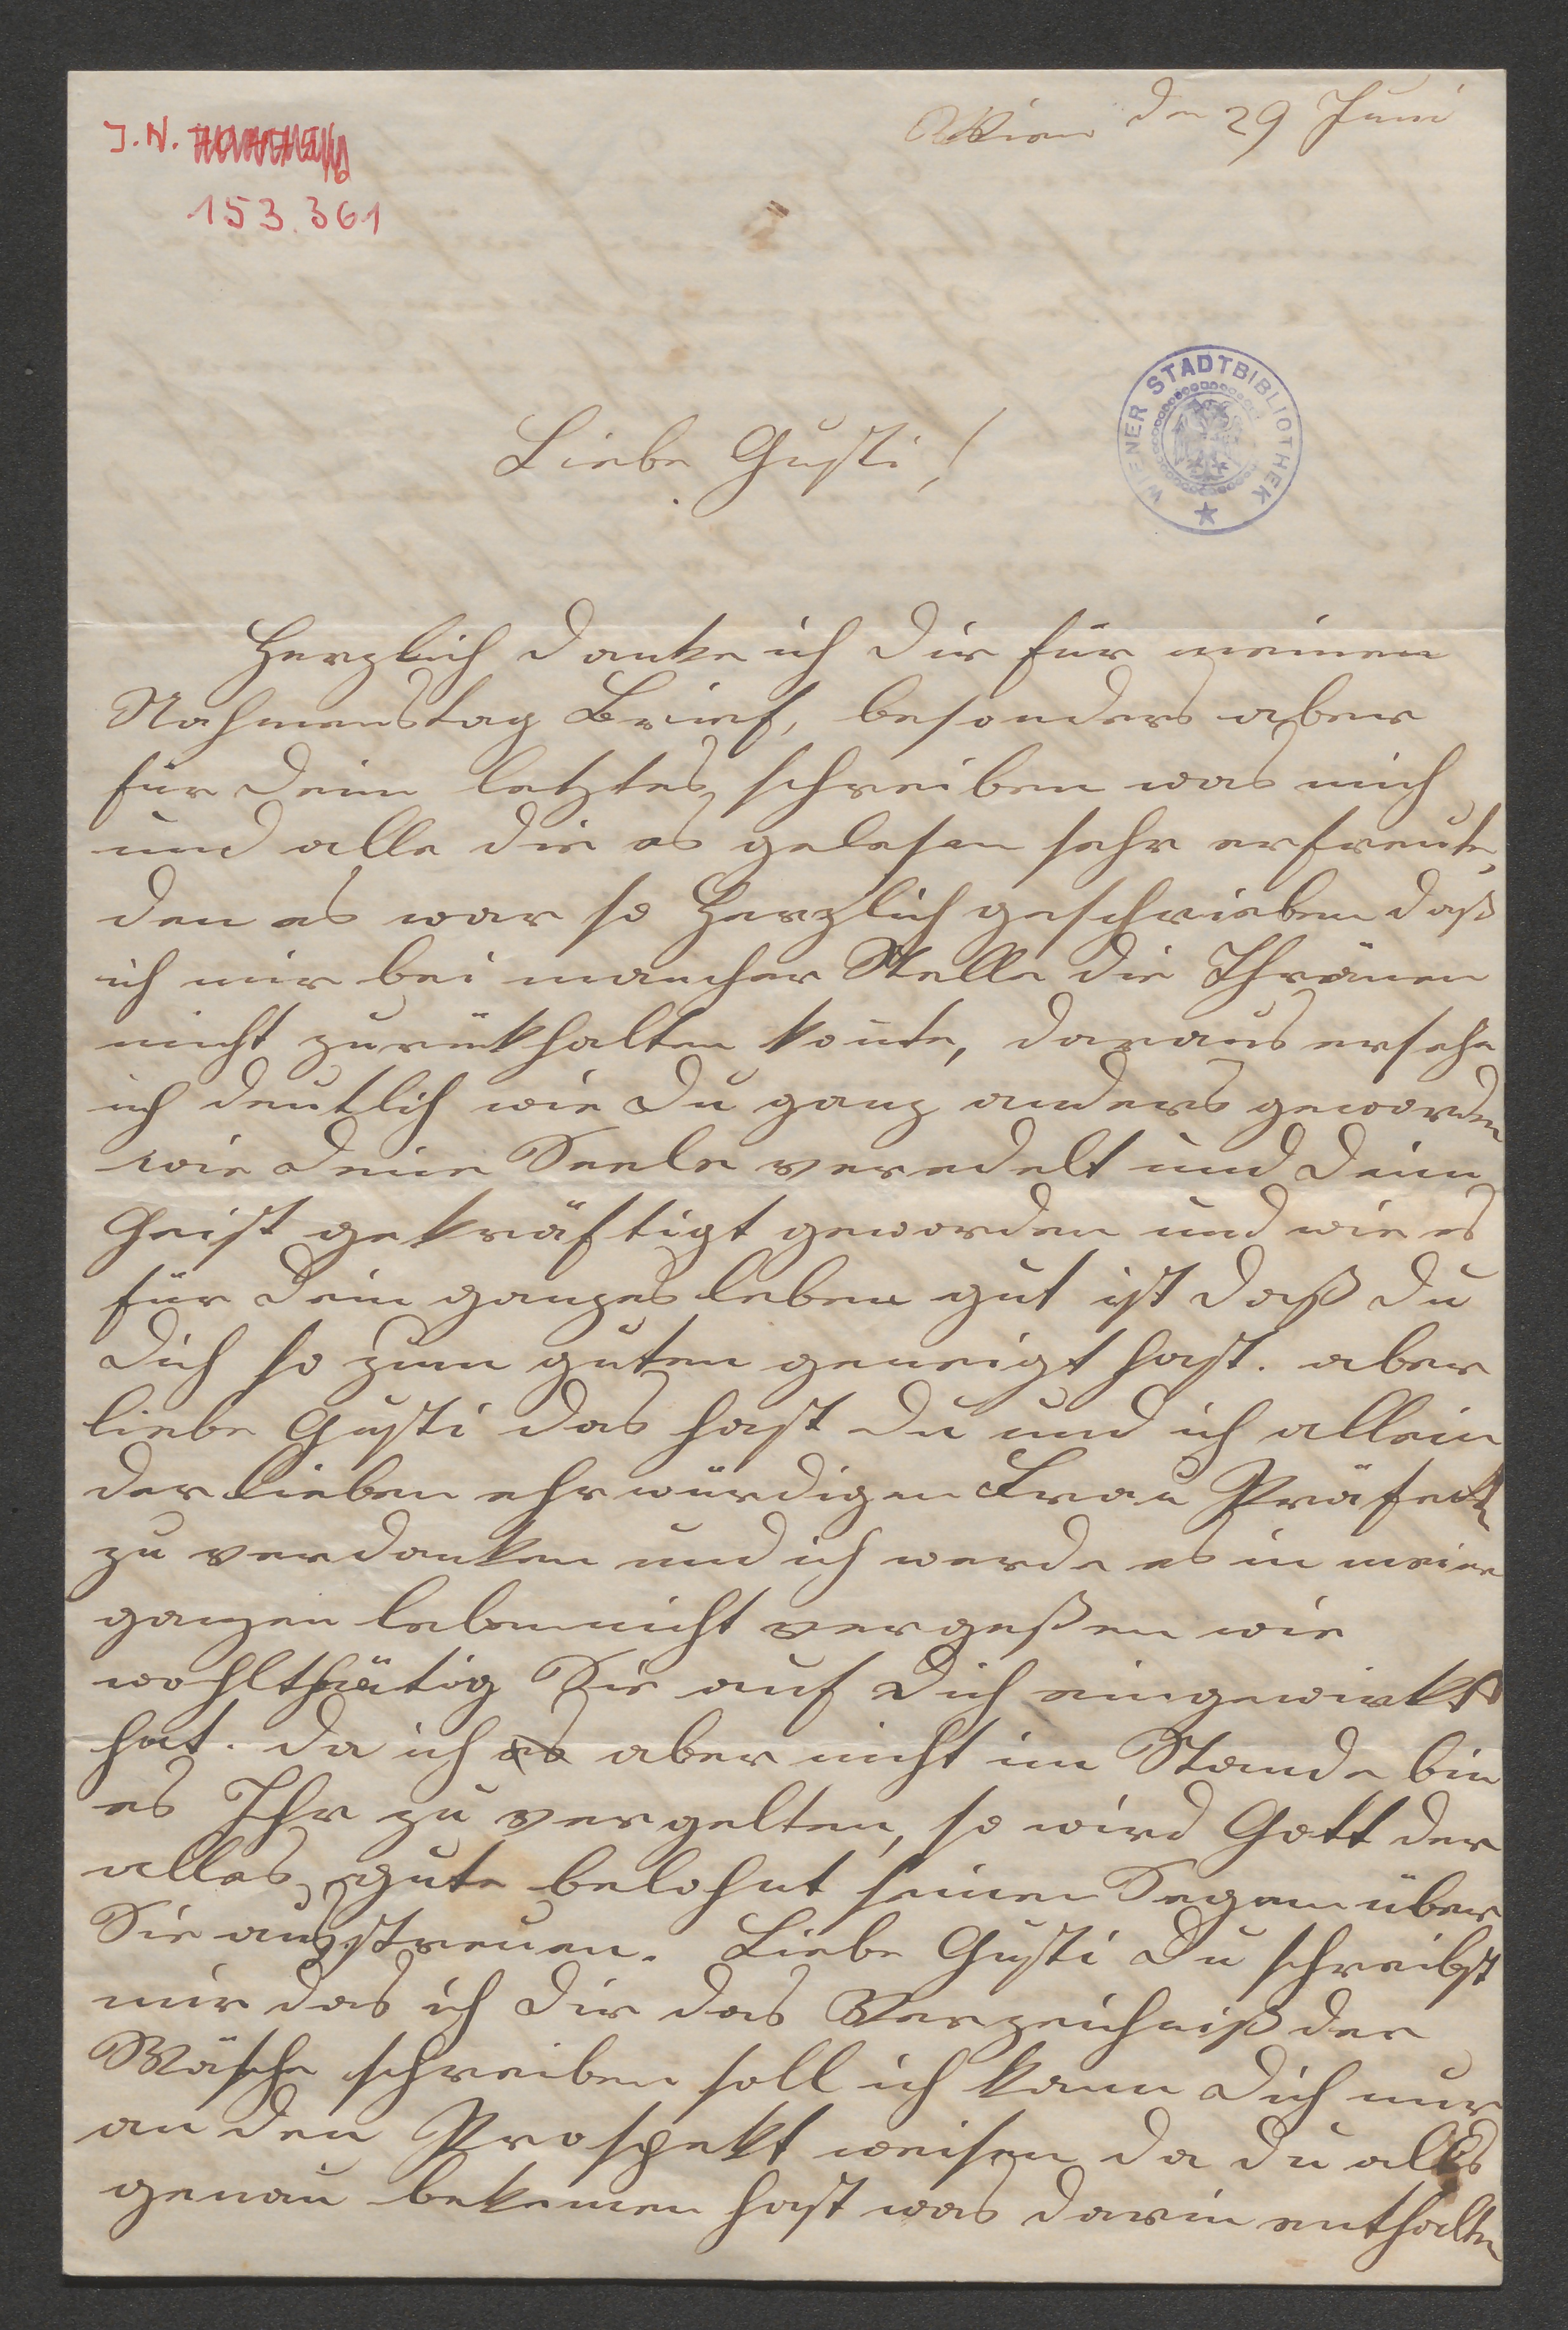 J. N.
153.361
Wien den 29 Juni
WIENER STADTBIBLIOTHEK
Liebe Gusti!
Herzlich danke ich dir für meinen
Nahmenstag Brief, besonders aber
für dein letztes schreiben was mich
und alle die es gelesen sehr erfreute,
den es war so Herzlich geschrieben daß
ich mir bei mancher Stelle die Thränen
nicht zurükhalten konte, daraus ersehe
ich deutlich wie du ganz anders geworden
wie deine Seele veredelt und dein
Geist gekräftigt geworden und wie es
für dein ganzes leben gut ist daß du
dich so zum guten geneigt hast. aber
liebe Gusti das hast du und ich allein
der lieben ehrwürdigen Frau Präfektin
zu verdanken und ich werde es in mein
ganzen leben nicht vergeßen wie
wohlthätig Sie auf dich eingewirkt
hat. da ich es aber nicht im Stande bin
es Ihr zu vergelten, so wird Gott der
alles gute belohnt seinen Segen über
Sie ausstreuen. Liebe Gusti du schreibst
mir das ich dir das Verzeichniß der
Wäsche schreiben soll ich kann dich nur
an den Prospekt weisen da du alles
genau bekomen hast was darin enthalten